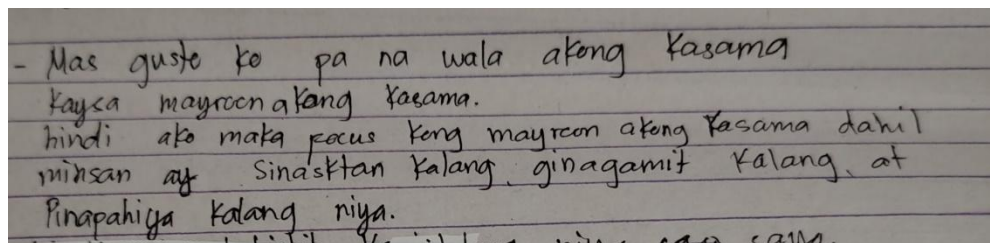 - Mas gusto ko pa na wala akong kasama
kaysa mayroon akong kasama.
hindi ako maka focus kong mayroon akong kasama dahil
minsan ay sinasktan kalang, ginagamit kalang, at
Pinapahiya kalang niya.